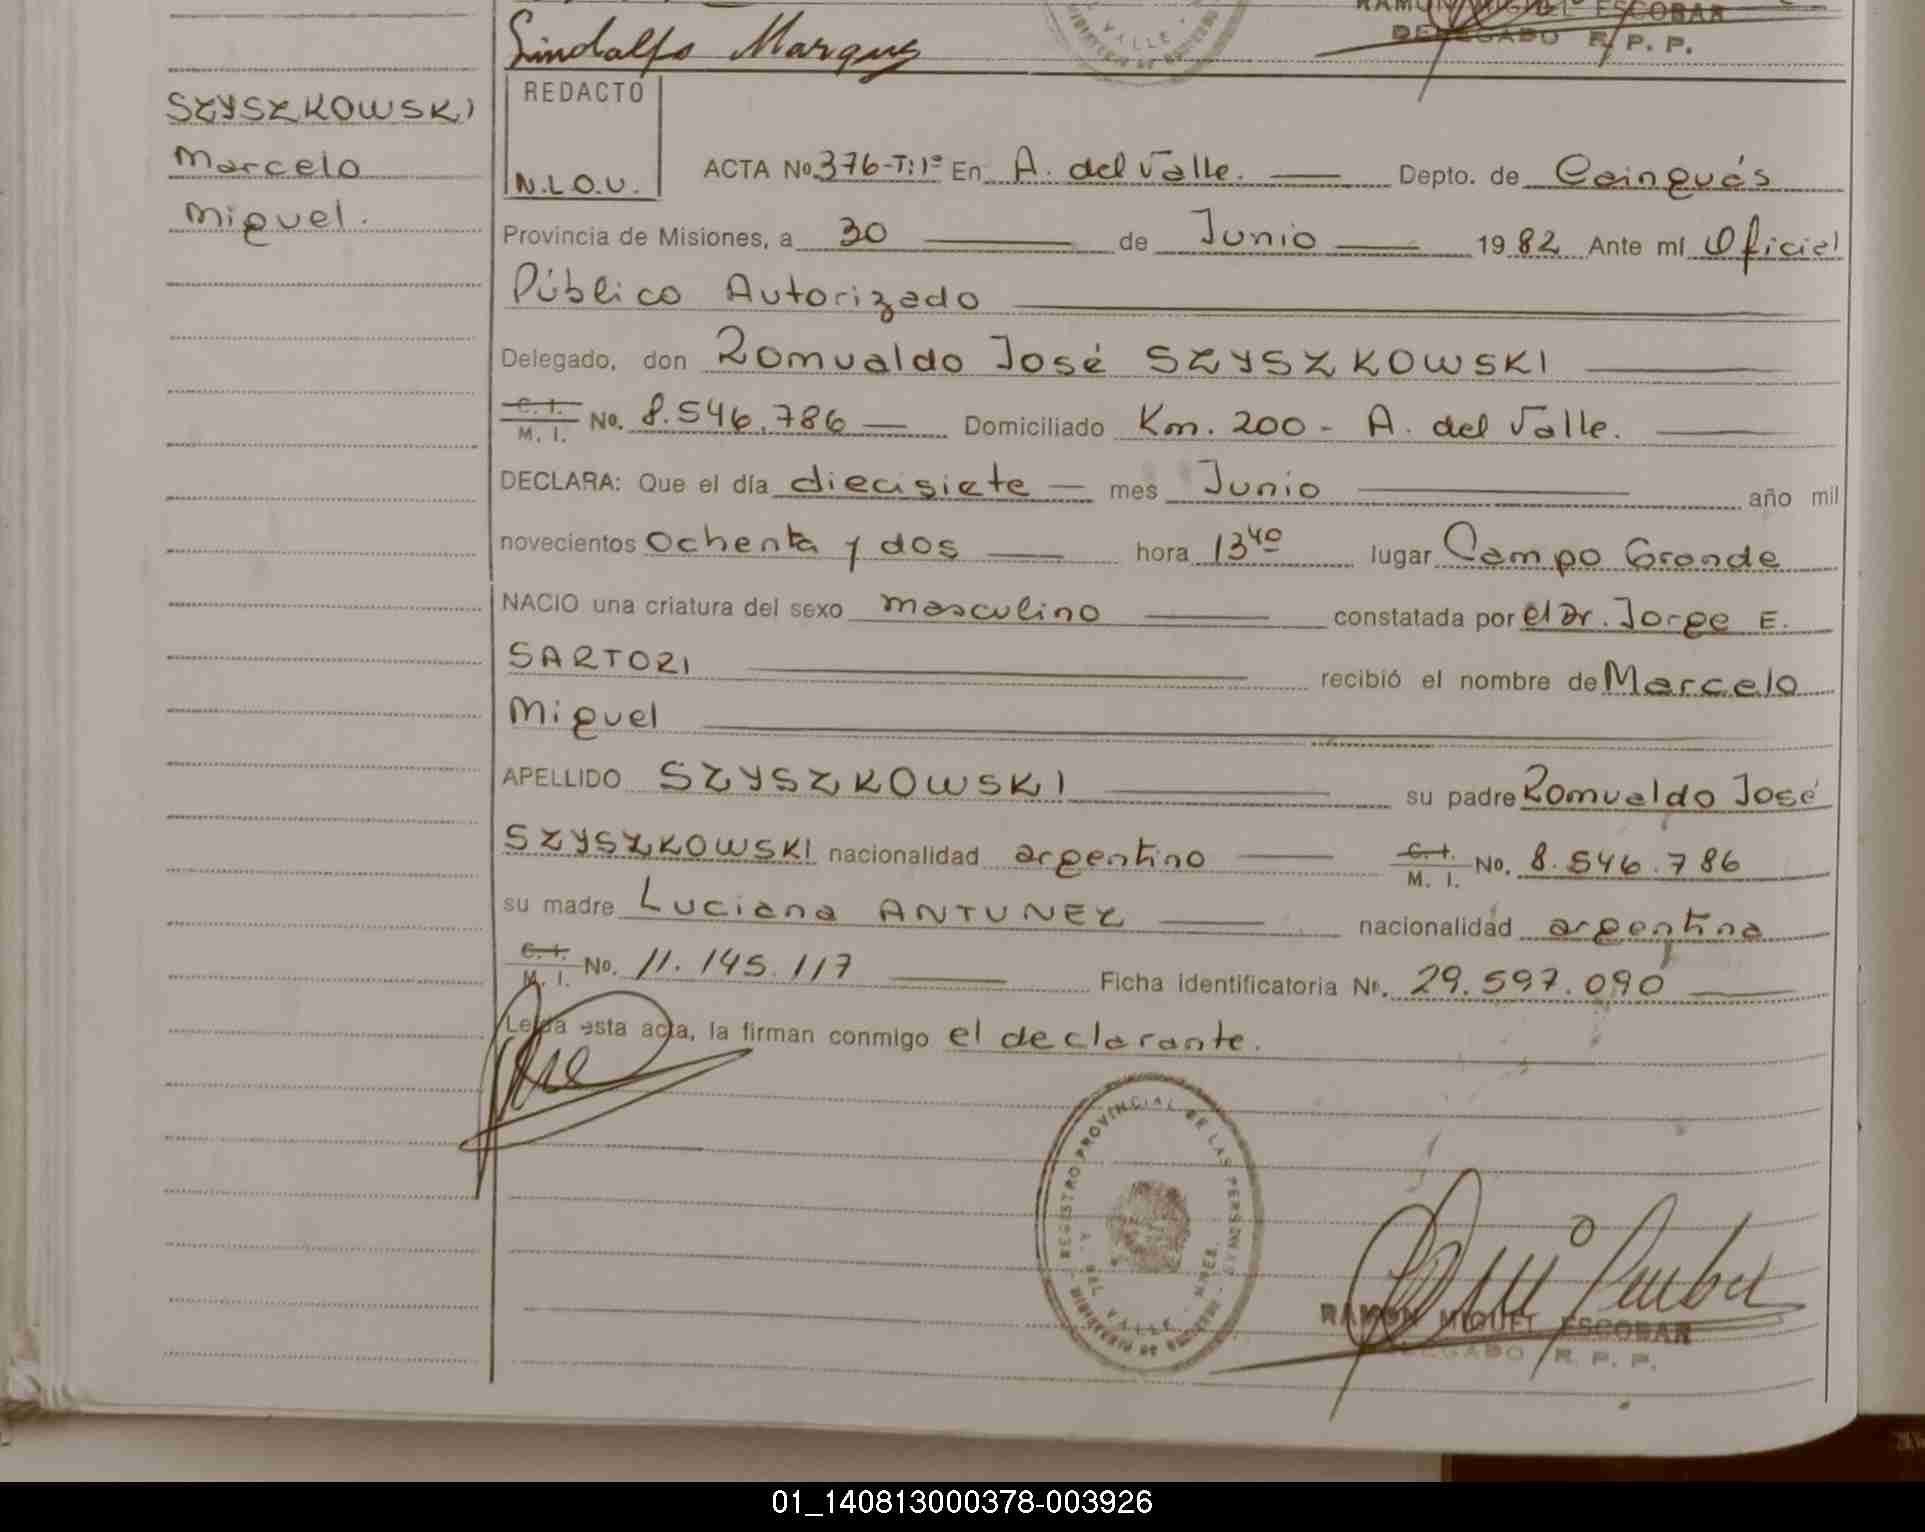 Lindolfo Marques
VALLE
RAMON MIGUEL ESCOBAR
DELEGADO R. P. P.
SZYSZKOWSKI
Marcelo
Miguel.
REDACTO
N.L.O.V.
ACTA No. 376-T:1º En A. del Valle. Depto. de Cainguás
Provincia de Misiones, a 30 de Junio 1982 Ante mí Oficial
Público Autorizado
Delegado, don Romualdo José SZYSZKOWSKI
C. I. M. I. No. 8.546.786 Domiciliado Km. 200 - A. del Valle.
DECLARA: Que el día diecisiete mes Junio año mil
novecientos ochenta y dos hora 13 40 lugar Campo Grande
NACIO una criatura del sexo masculino constatada por el Dr. Jorge E.
SARTORI recibió el nombre de Marcelo
Miguel
APELLIDO SZYSZKOWSKI su padre Romualdo José
SZYSZKOWSKI nacionalidad argentino C. I. M. I. No. 8.546.786
su madre Luciana ANTUNEZ nacionalidad argentina
C. I. M. I. No. 11.145.117 Ficha identificatoria Nº. 29.597.090
Leída esta acta, la firman conmigo el declarante.
REGISTRO PROVINCIAL DE LAS PERSONAS
A. DEL VALLE - MNES.
RAMON MIGUEL ESCOBAR
DELEGADO R. P. P.
01_140813000378-003926